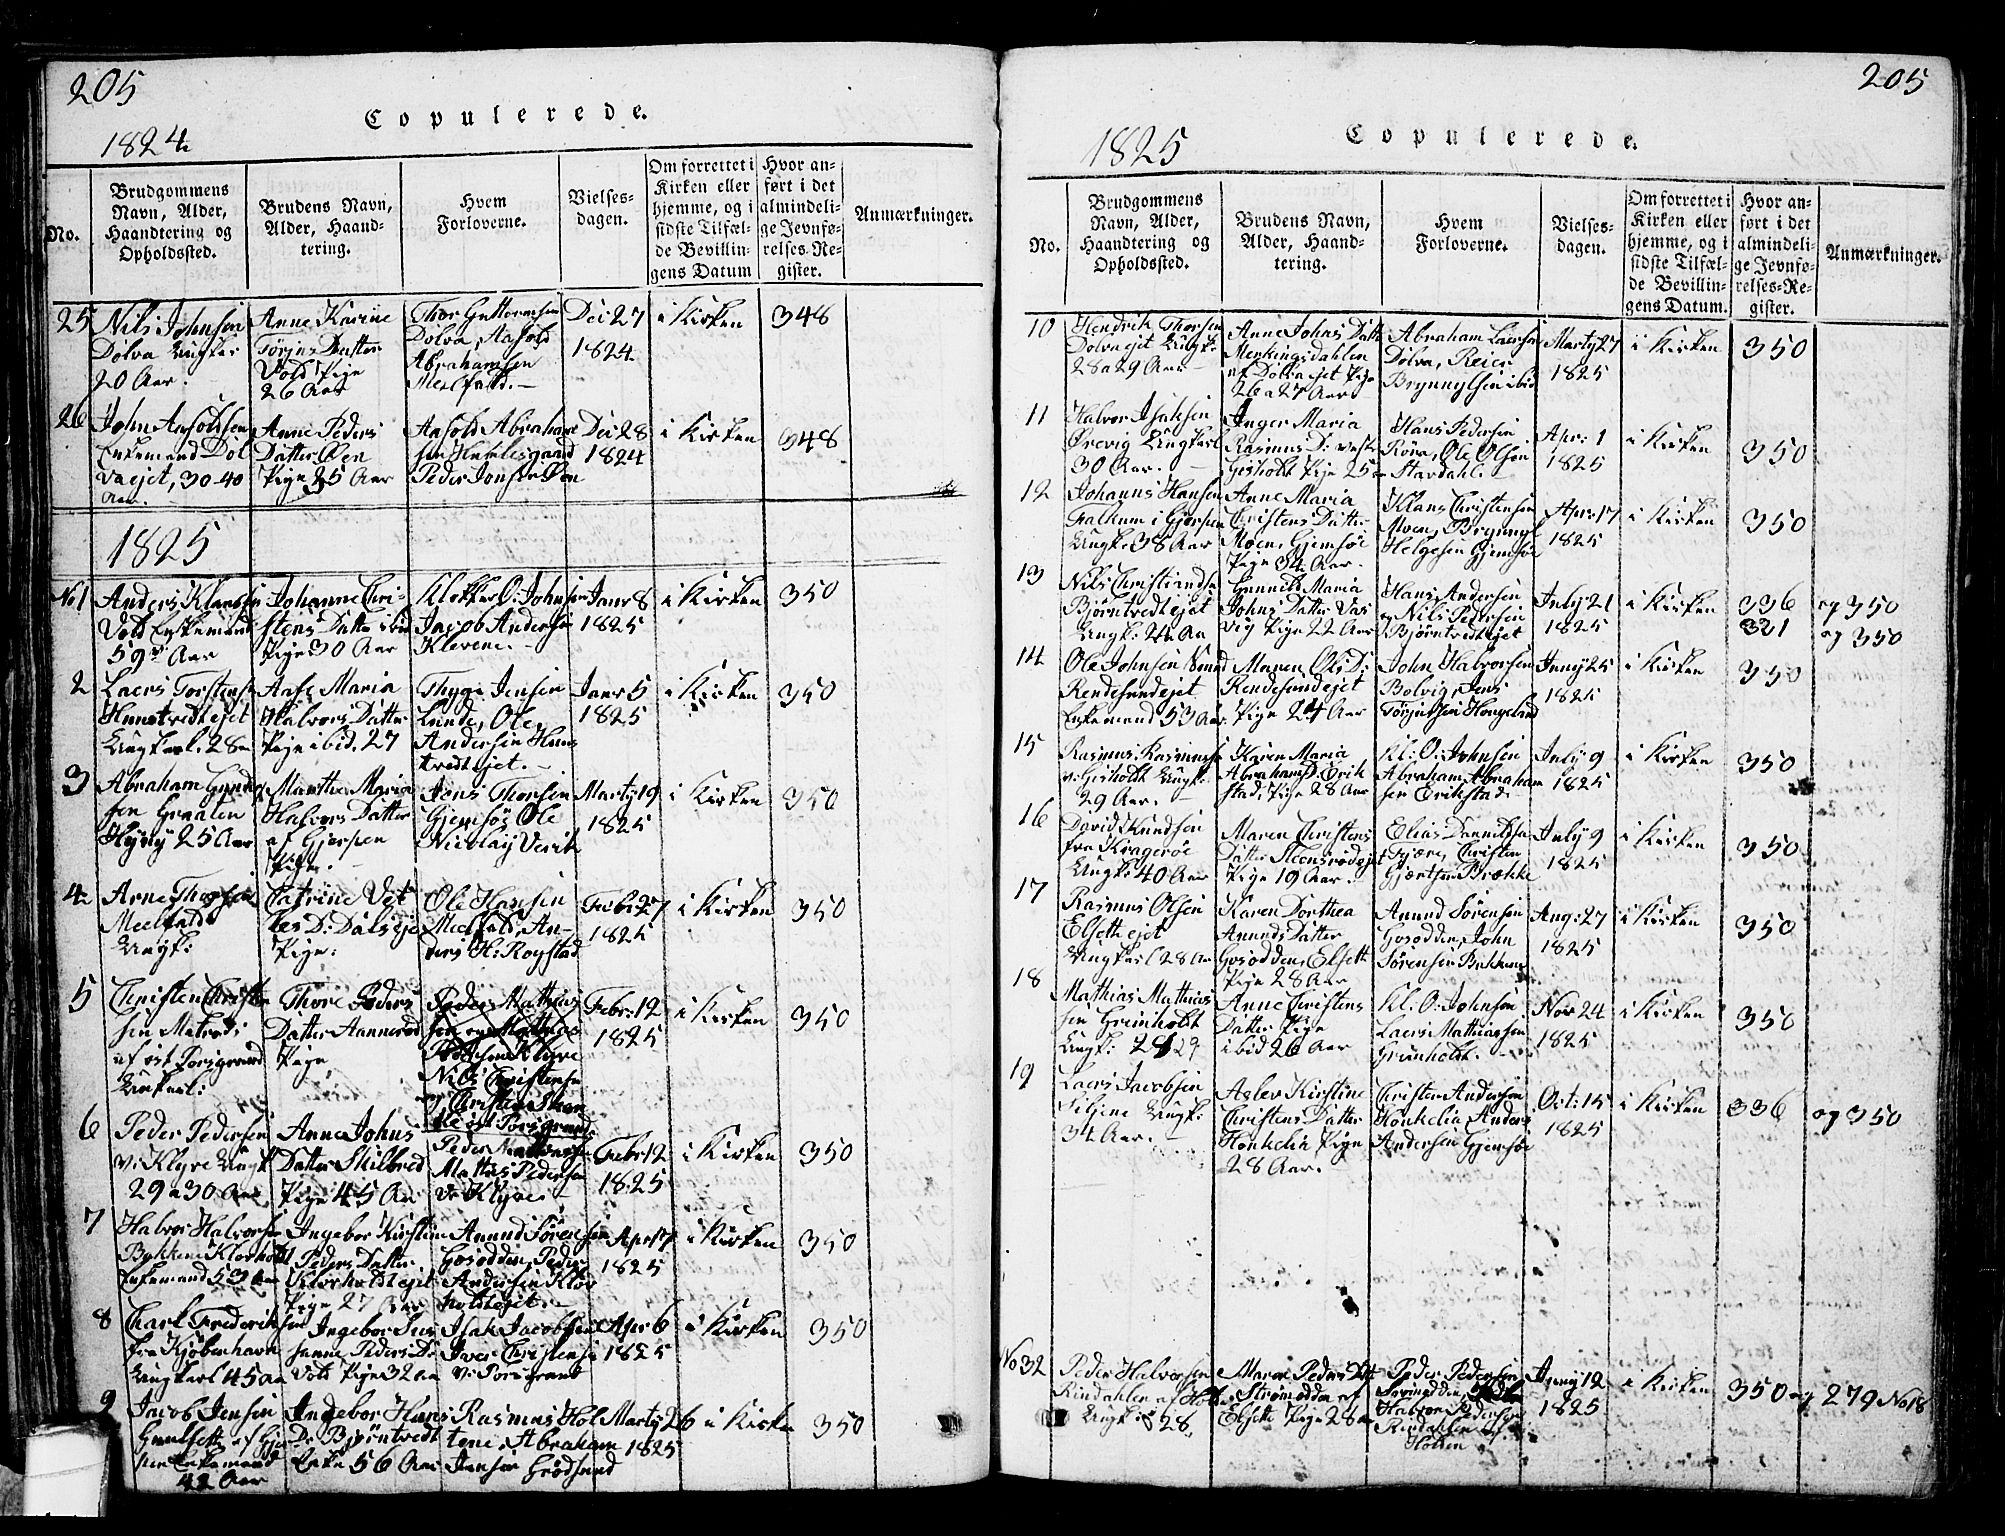 205
Copulerede.
1824
No.
Brudgommens
Navn, Alder,
Haandtering og
Opholdssted.
Brudens Navn,
Alder, Haand-
tering.
Hvem
Forloverne.
Vielses-
dagen.
Om forrettet i
Kirken eller
hjemme, og i
sidste Tilfæl-
de Bevillin-
gens Datum
Hvor an-
ført i det
almindeli-
ge Jevnfø-
relses-Re-
gister.
Anmærkninger.
25
Nils Johnsen
Dolva Ungkar
20 Aar.
Anne Karine
Torjus Datter
Vold Pige
26 Aar
Thor Guttormsen
Dolva, Aasold
Abrahamsen
Meelfald.
Dec 27
1824
i Kirken
348
26
John Aasoldsen
Enkemand Dol
va ejet, 30-40
Aar.
Anne Peders
Datter Øen
Pige 25 Aar
Aasold Abraham
Peder Jonsen Øen
Dec 28
1824
i Kirken
348
1825
No 1
Anders Klausen
Vold Enkemand
59 Aar
Johanne Chri-
stens Datter ibid
Pige 30 Aar
Klokker O: Johnsen
Jacob Andersen
Klevene.
Janr 8
1825
i Kirken
350
2
Laers Torstens
Hunstvedt ejet
Ungkarl. 28
Aase Maria
Halvors Datter
Pige ibid. 27
Thyge Jensen
Lunde, Ole
Andersen Huns
tvedt ejet.
Janr 5
1825
i Kirken
350
3
Abraham Gunder
sen Graaten
25 Aar
Marthe Maria
Halvors Datter
af Gjerpen
Pige.
Jens Thorsen
Gjemsøe Ole
Nicolay Verik
Marty 19
1825
i Kirken
350
4
Arne Thorsen
Meelfald
Ungk:
Catrine Vet
les D: Dalseje
Pige:
Ole Hansen
Meelfald, An-
ders H: Roystad
Febr 27
1825
i Kirken
350
5
Christen Christen
sen
af øst Porsgrund
Ungkarl:
Thore Peders
Datter Aannerød
Pige,
Peder Mathias
sen og Mathias
Pedersen Klyve
Nils Christensen
og Christen
øst Porsgrund
Febr: 12
1825
i Kirken
350
6
Peder Pedersen
V: Klyve Ungk
29 a 30 Aar
Anne Johns
Datter Skilbred
Pige 45 Aar
Peder Mathiasen
Mathias Pedersen
V: Klyve.
Febr 12
1825
i Kirken
350
7
Halvor Halvorsen
Bakkene Klovholt
Enkemand 53 Aar
Ingebor Kirstine
Peders Datter
Klovholdt ejet
Pige 27 Aar
Anund Sørensen
Gosodden, Peder
Andersen Klov
holdt ejet.
Apr 17
1825
i Kirken
350
8
Charl Frederiksen
fra Kjøbenhavn
Ungkarl 45 aar
Ingebor Sus
sanne Peders D:
Vold Pige 32 aar
Isak Jacobsen
Iver Christensen
V: Porsgrund
Apr 6
1825
i Kirken
350
9
Jacob Jensen
Gjer
pen Enkemand
42 Aar
Ingebor Hans
D: Bjørntvedt
Enke 56 Aar
Rasmus Hol
tene, Abraham
Jensen Grødsund
Marty 26
1825
i Kirken
350
205
1825
Copulerede.
No.
Brudgommens
Navn, Alder,
Haandtering og
Opholdssted.
Brudens Navn,
Alder, Haand-
tering.
Hvem
Forloverne.
Vielses-
dagen.
Om forrettet i
Kirken eller
hjemme, og i
sidste Tilfæl-
de Bevillin-
gens Datum.
Hvor an-
ført i det
almindeli-
ge Jevnfø-
relses-Re-
gister.
Anmærkninger.
10
Hendrik Thorsen
Dolva ejet Ungk:
28 a 29 Aar
Anne Johns Datt
Menkingsdahlen
af Dolva ejet Pige
26 a 27 Aar
Abraham Laersen
Dolva, Reier
Brynnylsen ibid
Marty 27
1825
i Kirken
350
11
Halvor Isaksen
Ørevig Ungkarl
30 Aar.
Inger Maria
Rasmus D: vestr
Gisholt Pige 25
Hans Pedersen
Røra, Ole Olsen
Stavdahl.
Apr: 1
1825
i Kirken
350
12
Johanns Hansen
Falkum i Gjerpen
Ungk: 38 Aar
Anne Maria
Christens Datter
Moen, Gjemsøe
Pige 34 Aar.
Klaus Christensen
Moen, Brynnyl
Helgesen Gjemsøe
Apr: 17
1825
i Kirken
350
13
Nils Christiands
Bjørntvedt ejet
Ungk: 24 Aar
Gunnild Maria
Johns Datter Vas
vig Pige 22 Aar
Hans Andersen
og Nils Pedersen
Bjørntvedt ejet
July 21
1825
i Kirken
336 og 350
321 og 350
14
Ole Johnsen Smed
Rendesund ejet
Enkemand 53 Aar
Maren Ols D:
Rendesund ejet
Pige 24 Aar
John Halvorsen
Bolvig, Jens
Torjussen Hougelund
Juny 25
1825
i Kirken
350
15
Rasmus Rasmussen
v: Gisholdt Ungk:
29 Aar.
Karen Maria
Abrahams D: Erik
stad, Pige 28 Aar
Kl: O: Johnsen
Abraham Abraham
sen Erikstad.
July 9
1825
i Kirken
350
16
David Knudsen
fra Kragerøe
Ungk: 40 Aar
Maren Christens
Datter Steensrød ejet
Pige 19 Aar.
Elias Danielsen
Fjære, Christen
Gjertsen Brække
July 9
1825
i Kirken
350
17
Rasmus Olsen
Elsett ejet
Ungkarl 28 Aar
Karen Dorthea
Anunds Datter
Gosodden, Elsett
Pige 28 Aar
Anund Sørensen
Gosodden, John
Sørensen Bakkene
Aug: 27
1825
i Kirken
350
18
Mathias Mathias
sen Grinholdt
Ungk: 29
Anne Christens
Datter Pige
ibid 26 Aar
Kl: O: Johnsen
Laers Mathiassen
Grinholdt.
Nov 24
1825
i Kirken
350
19
Laers Jacobsen
Siljene Ungk:
34 Aar.
Aslev Kirstine
Christens Datter
Honkelia Pige
28 Aar.
Christen Andersen
Honkelia, Anders
Andersen Gjemsøe
Oct: 15
1825
i Kirken
336 og 350
No 32
Peder Halvorsen
Rindahlen af Holte
Ungk: 28
Maren Peders Datt
Strømodden af
Elsett Pige 28 aar
Peder Pedersen
Halvor Pedersen
Rindahlen af
Holten
Juny 12
1825
i Kirken
350 og 279 No 18